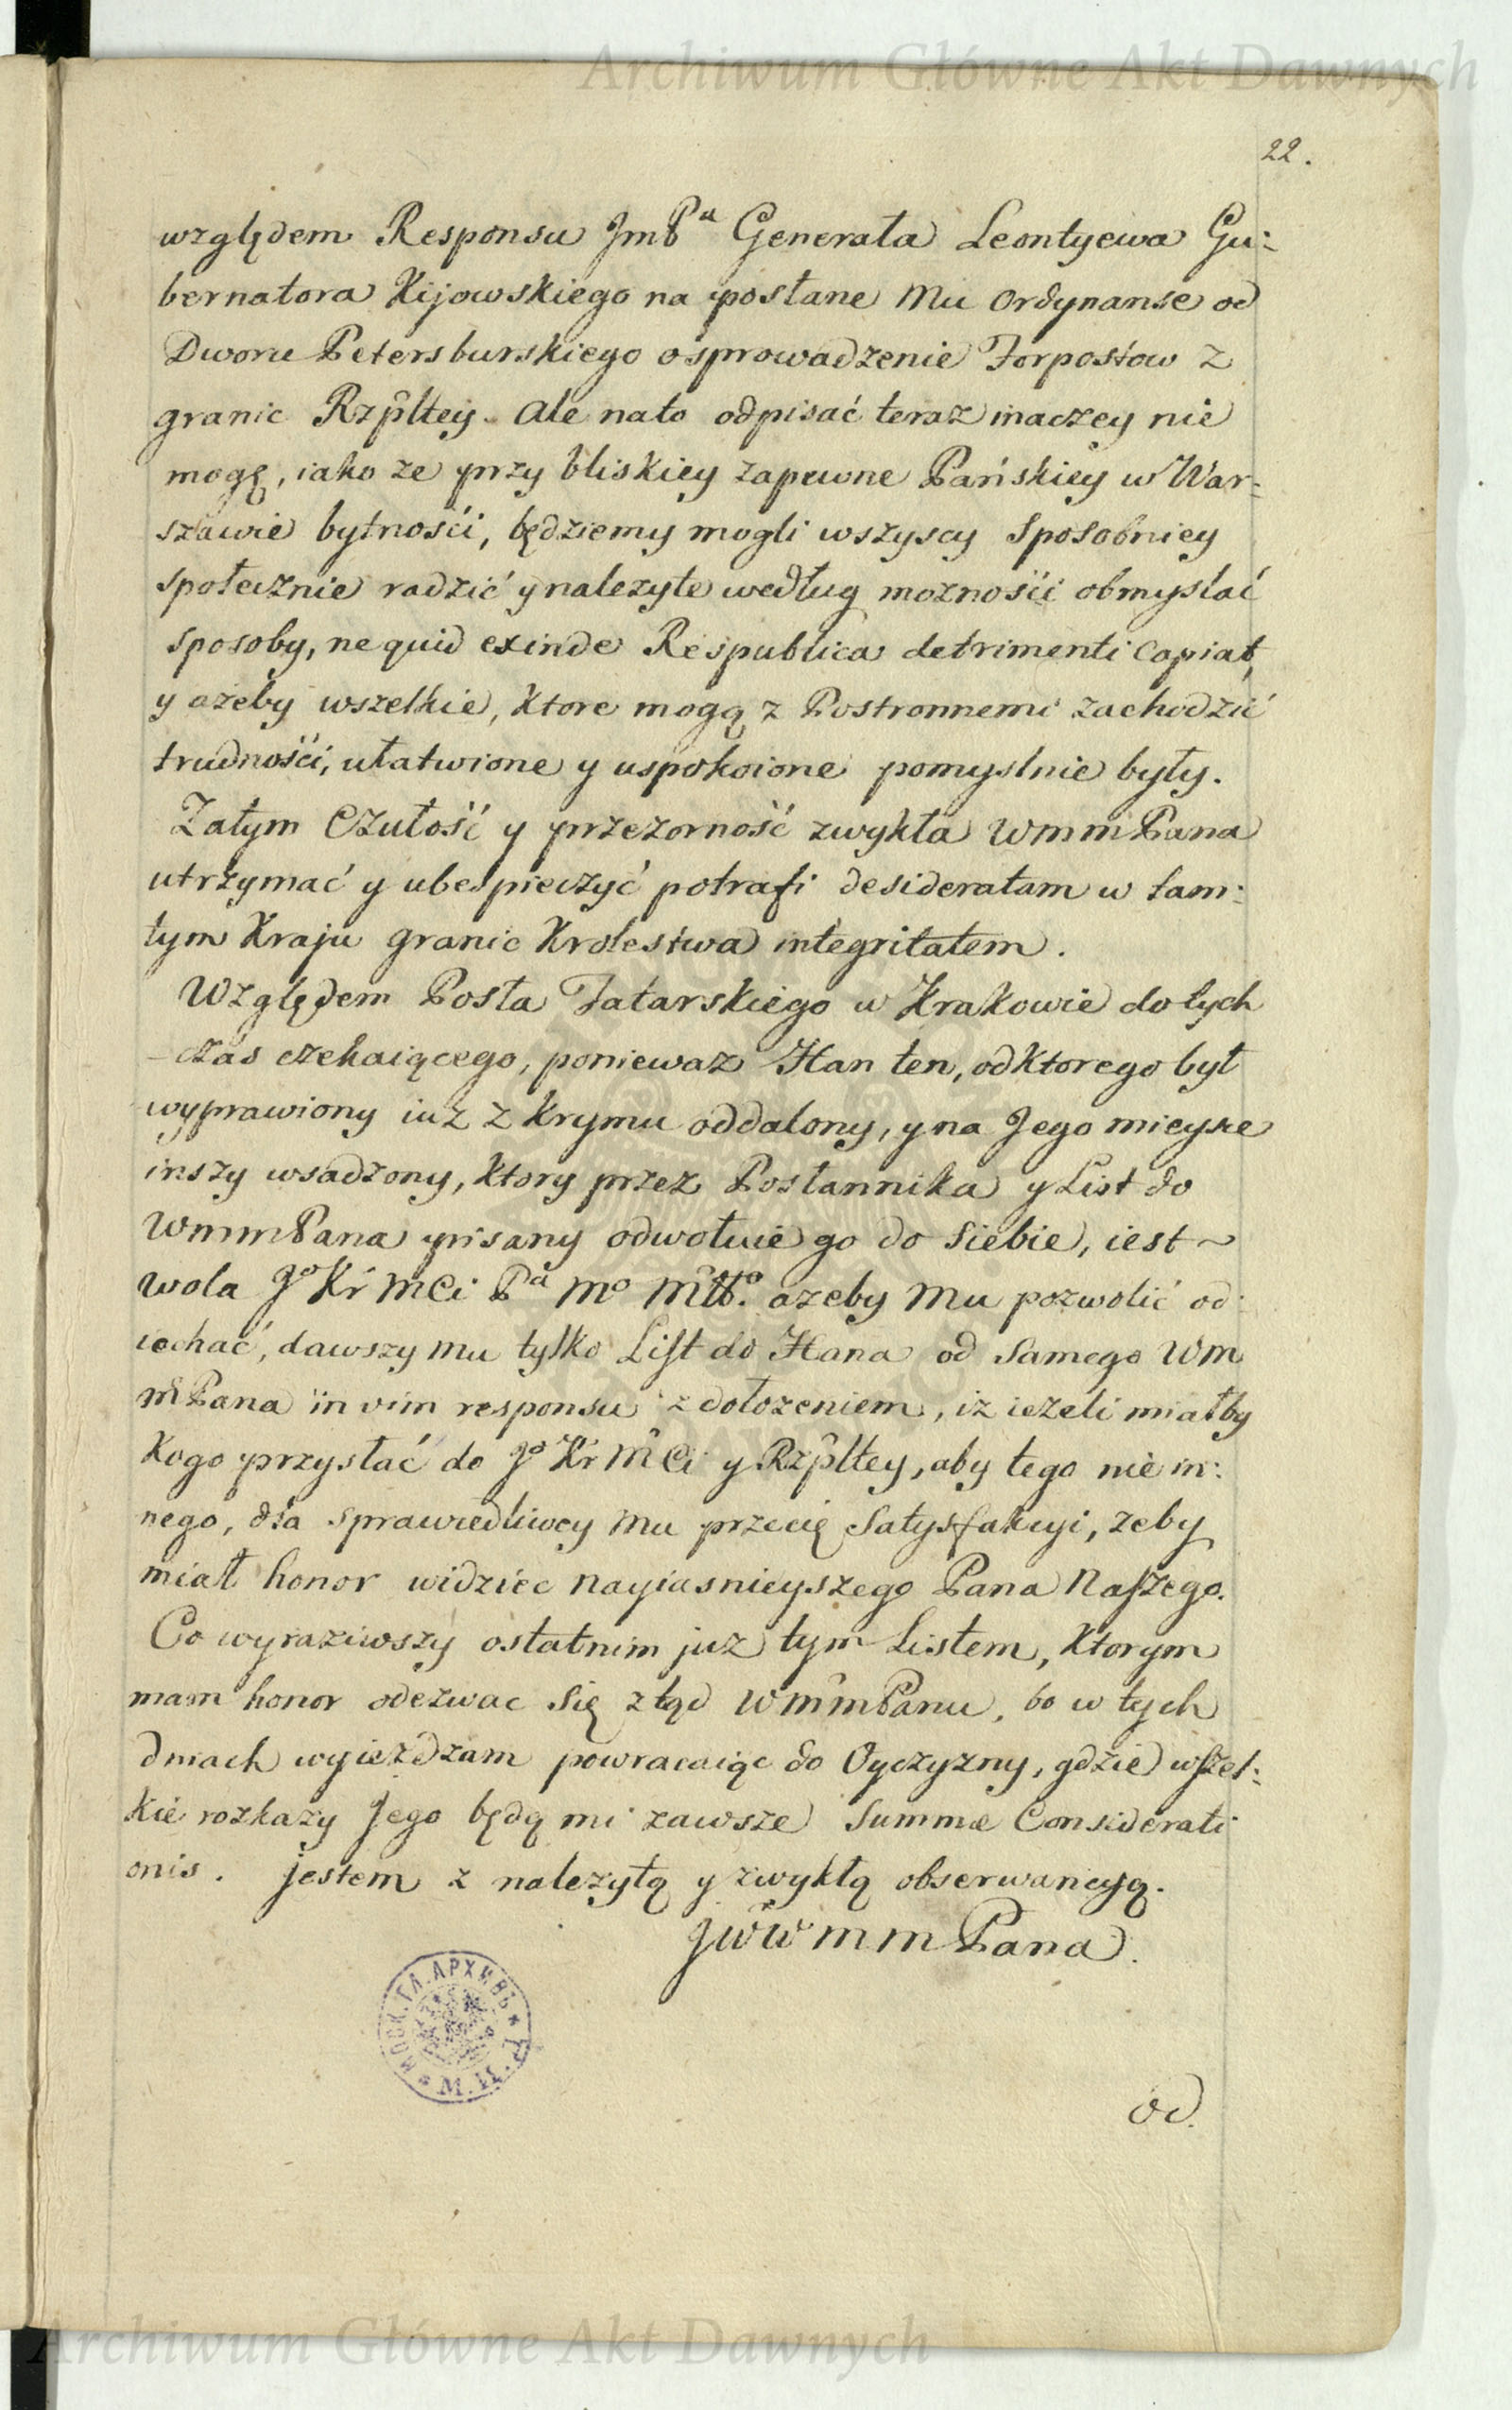 Archiwum Główne Akt Dawnych
22.
względem Responsu JmP<sup>a</sup> Generała Leontyewa Gu:
bernatora Kijowskiego na posłane Mu Ordynanse od
Dworu Petersburskiego o sprowadzenie Forpostow z
granic Rzpltey. Ale na to odpisać teraz inaczey nie
mogę, iako ze przy bliskiey zapewne Pańskiey w War=
szawie bytnośći, będziemy mogli wszyscy Sposobniey
społecznie radzić y nalezyte według moznośći obmyslać
sposoby, ne quid exinde Respublica detrimenti capiat,
y azeby wszelkie, ktore mogą z Postronnemi zachodzić
trudnośći, ułatwione y uspokoione pomyslnie były.
Zatym Czułość y przezorność zwykła WmmPana
utrzymać y ubespieczyć potrafi desideratam w tam:
tym Kraju granic Krolestwa integritatem.
Względem Posła Tatarskiego w Krakowie do tych
czas czekaiącego, poniewaz Han ten, od ktorego był
wyprawiony iuz z Krymu oddalony, y na Jego mieysce
inszy wsadzony, ktory przez Posłannika y List do
WmmPana pisany odwołuie go do siebie, iest ~
wola J<sup>o</sup> Kr Mci P<sup>a</sup> M<sup>o</sup> azeby Mu pozwolić od:
iechać, dawszy mu tylko List do Hana od Samego Wm
mPana in vim responsu z dołozeniem, iz iezeli miałby
Kogo przysłać do J<sup>o</sup> Kr Mci y Rzpltey, aby tego nie in:
nego, dla sprawiedliwey mu przecię Satysfakcyi, zeby
miał honor widziec Nayiasnieyszego Pana Naszego.
Co wyraziwszy ostatnim juz tym Listem, Ktorym
mam honor odezwac się ztąd WmmPanu, bo w tych
dniach wyiezdzam powracaiąc do Oyczyzny, gdzie wszel:
kie rozkazy Jego będą mi zawsze Summæ Considerati
onis. Jestem z nalezytą y zwykłą obserwancyą.
JWWmmPana.
МОСК. ГЛ. АРХИВЪ * М. И. *
od.
Archiwum Główne Akt Dawnych